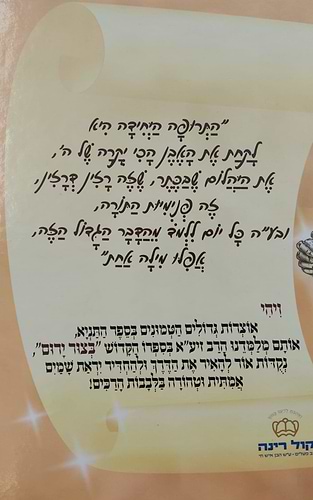 "הַתְּרוּפָה הַיְּחִידָה הִיא
לָקַחַת אֶת הָאֶבֶן הֲכִי יְקָרָה שֶׁל ה',
אֶת הַיַּהֲלוֹם שֶׁבַּכֶּתֶר, שֶׁזֶּה רָזִין דְּרָזִין,
זֶה פְּנִימִיּוּת הַתּוֹרָה,
ובע"ה כָּל יוֹם לִלְמֹד מֵהַדָּבָר הַגָּדוֹל הַזֶּה,
אֲפִלּוּ מִילָה אַחַת"
וִיהִי
אוֹצְרוֹת גְּדוֹלִים הַטְּמוּנִים בְּסֵפֶר הַתַּנְיָא,
אוֹתָם מְלַמְּדֵנוּ הָרַב זיע"א בְּסִפְרוֹ הַקָּדוֹשׁ "בְּצוּר יָרוּם",
נְקֻדּוֹת אוֹר לְהָאִיר אֶת הַדֶּרֶךְ וּלְהַחְדִּיר יִרְאַת שָׁמַיִם
אֲמִתִּית וּטְהוֹרָה בַּלְּבָבוֹת הָרַבִּים!
קול רינה